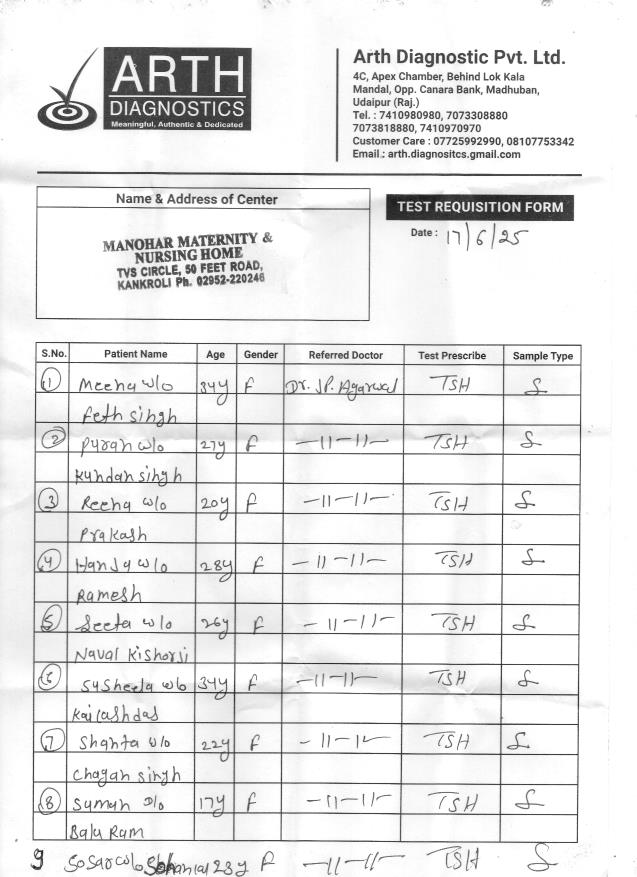 ARTH
DIAGNOSTICS
Meaningful, Authentic & Dedicated
Arth Diagnostic Pvt. Ltd.
4C, Apex Chamber, Behind Lok Kala
Mandal, Opp. Canara Bank, Madhuban,
Udaipur (Raj.)
Tel. : 7410980980, 7073308880
7073818880, 7410970970
Customer Care : 07725992990, 08107753342
Email.: arth.diagnositcs.gmail.com
Name & Address of Center
MANOHAR MATERNITY &
NURSING HOME
TVS CIRCLE, 50 FEET ROAD,
KANKROLI Ph. 02952-220246
TEST REQUISITION FORM
Date : 17/6/25
S.No. Patient Name Age Gender Referred Doctor Test Prescribe Sample Type
1 Meena w/o 34y F Dr. J.P. Agarwal TSH S
Feth singh
2 Puran w/o 27y F -11-11- TSH S
Kundan singh
3 Reena w/o 20y F -11-11- TSH S
Prakash
4 Hansa w/o 28y F -11-11- TSH S
Ramesh
5 Seeta w/o 26y F -11-11- TSH S
Naval Kishorji
6 Susheela w/o 34y F -11-11- TSH S
Kailashdas
7 Shanta w/o 22y F -11-11- TSH S
Chagan singh
8 Suman D/o 17y F -11-11- TSH S
Balu Ram
9 Sosar w/o 23y F -11-11- TSH S